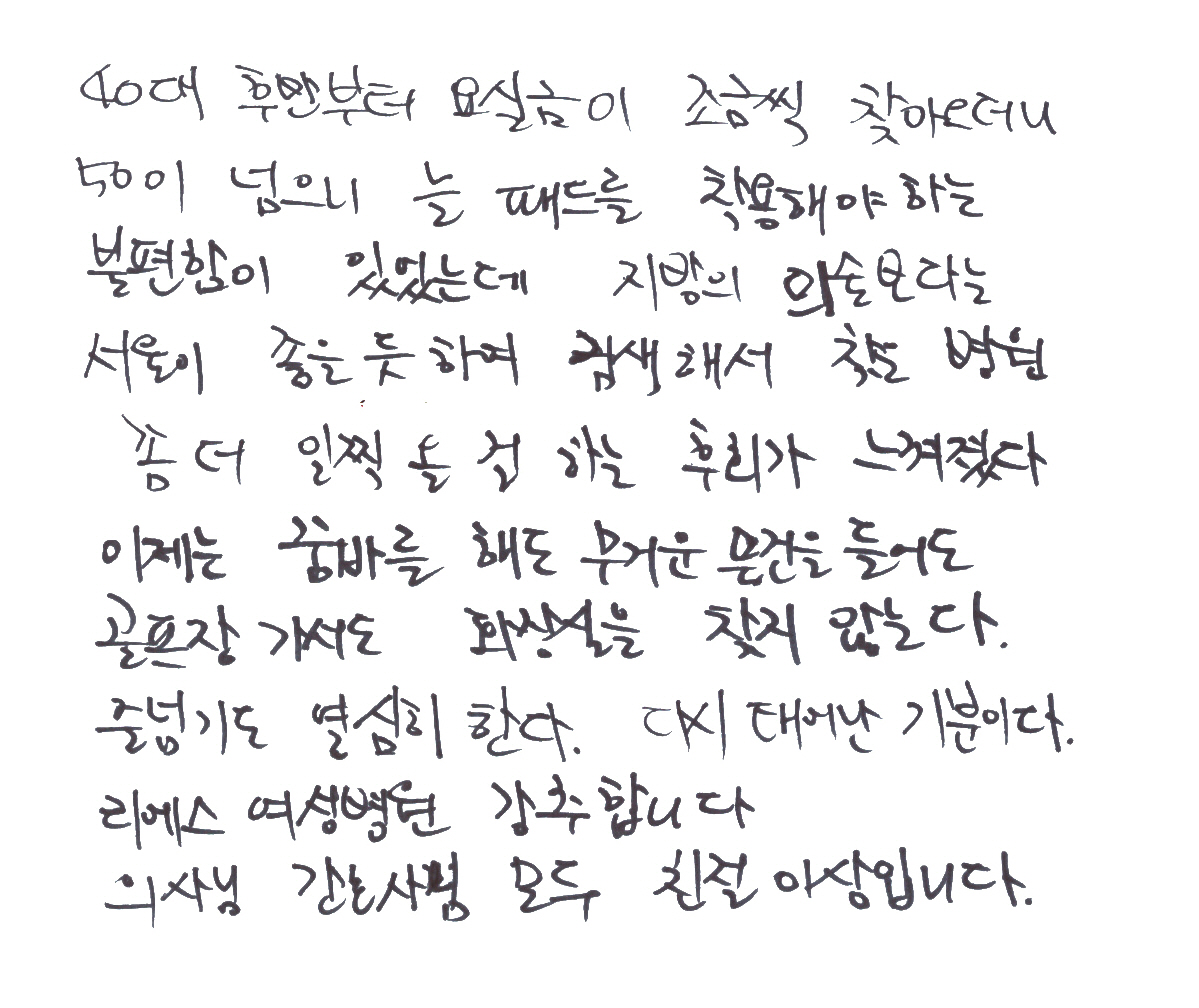 40대 후반부터 요실금이 조금씩 찾아오더니
50이 넘으니 늘 패드를 착용해야 하는
불편함이 있었는데 지방의 의술보다는
서울이 좋을 듯 하여 검색해서 찾은 병원
좀 더 일찍 올 걸 하는 후회가 느껴졌다
이제는 줌바를 해도 무거운 물건을 들어도
골프장 가서도 화장실을 찾지 않는다.
줄넘기도 열심히 한다. 다시 태어난 기분이다.
리에스 여성병원 강추합니다
의사님 간호사님 모두 친절 이상입니다.